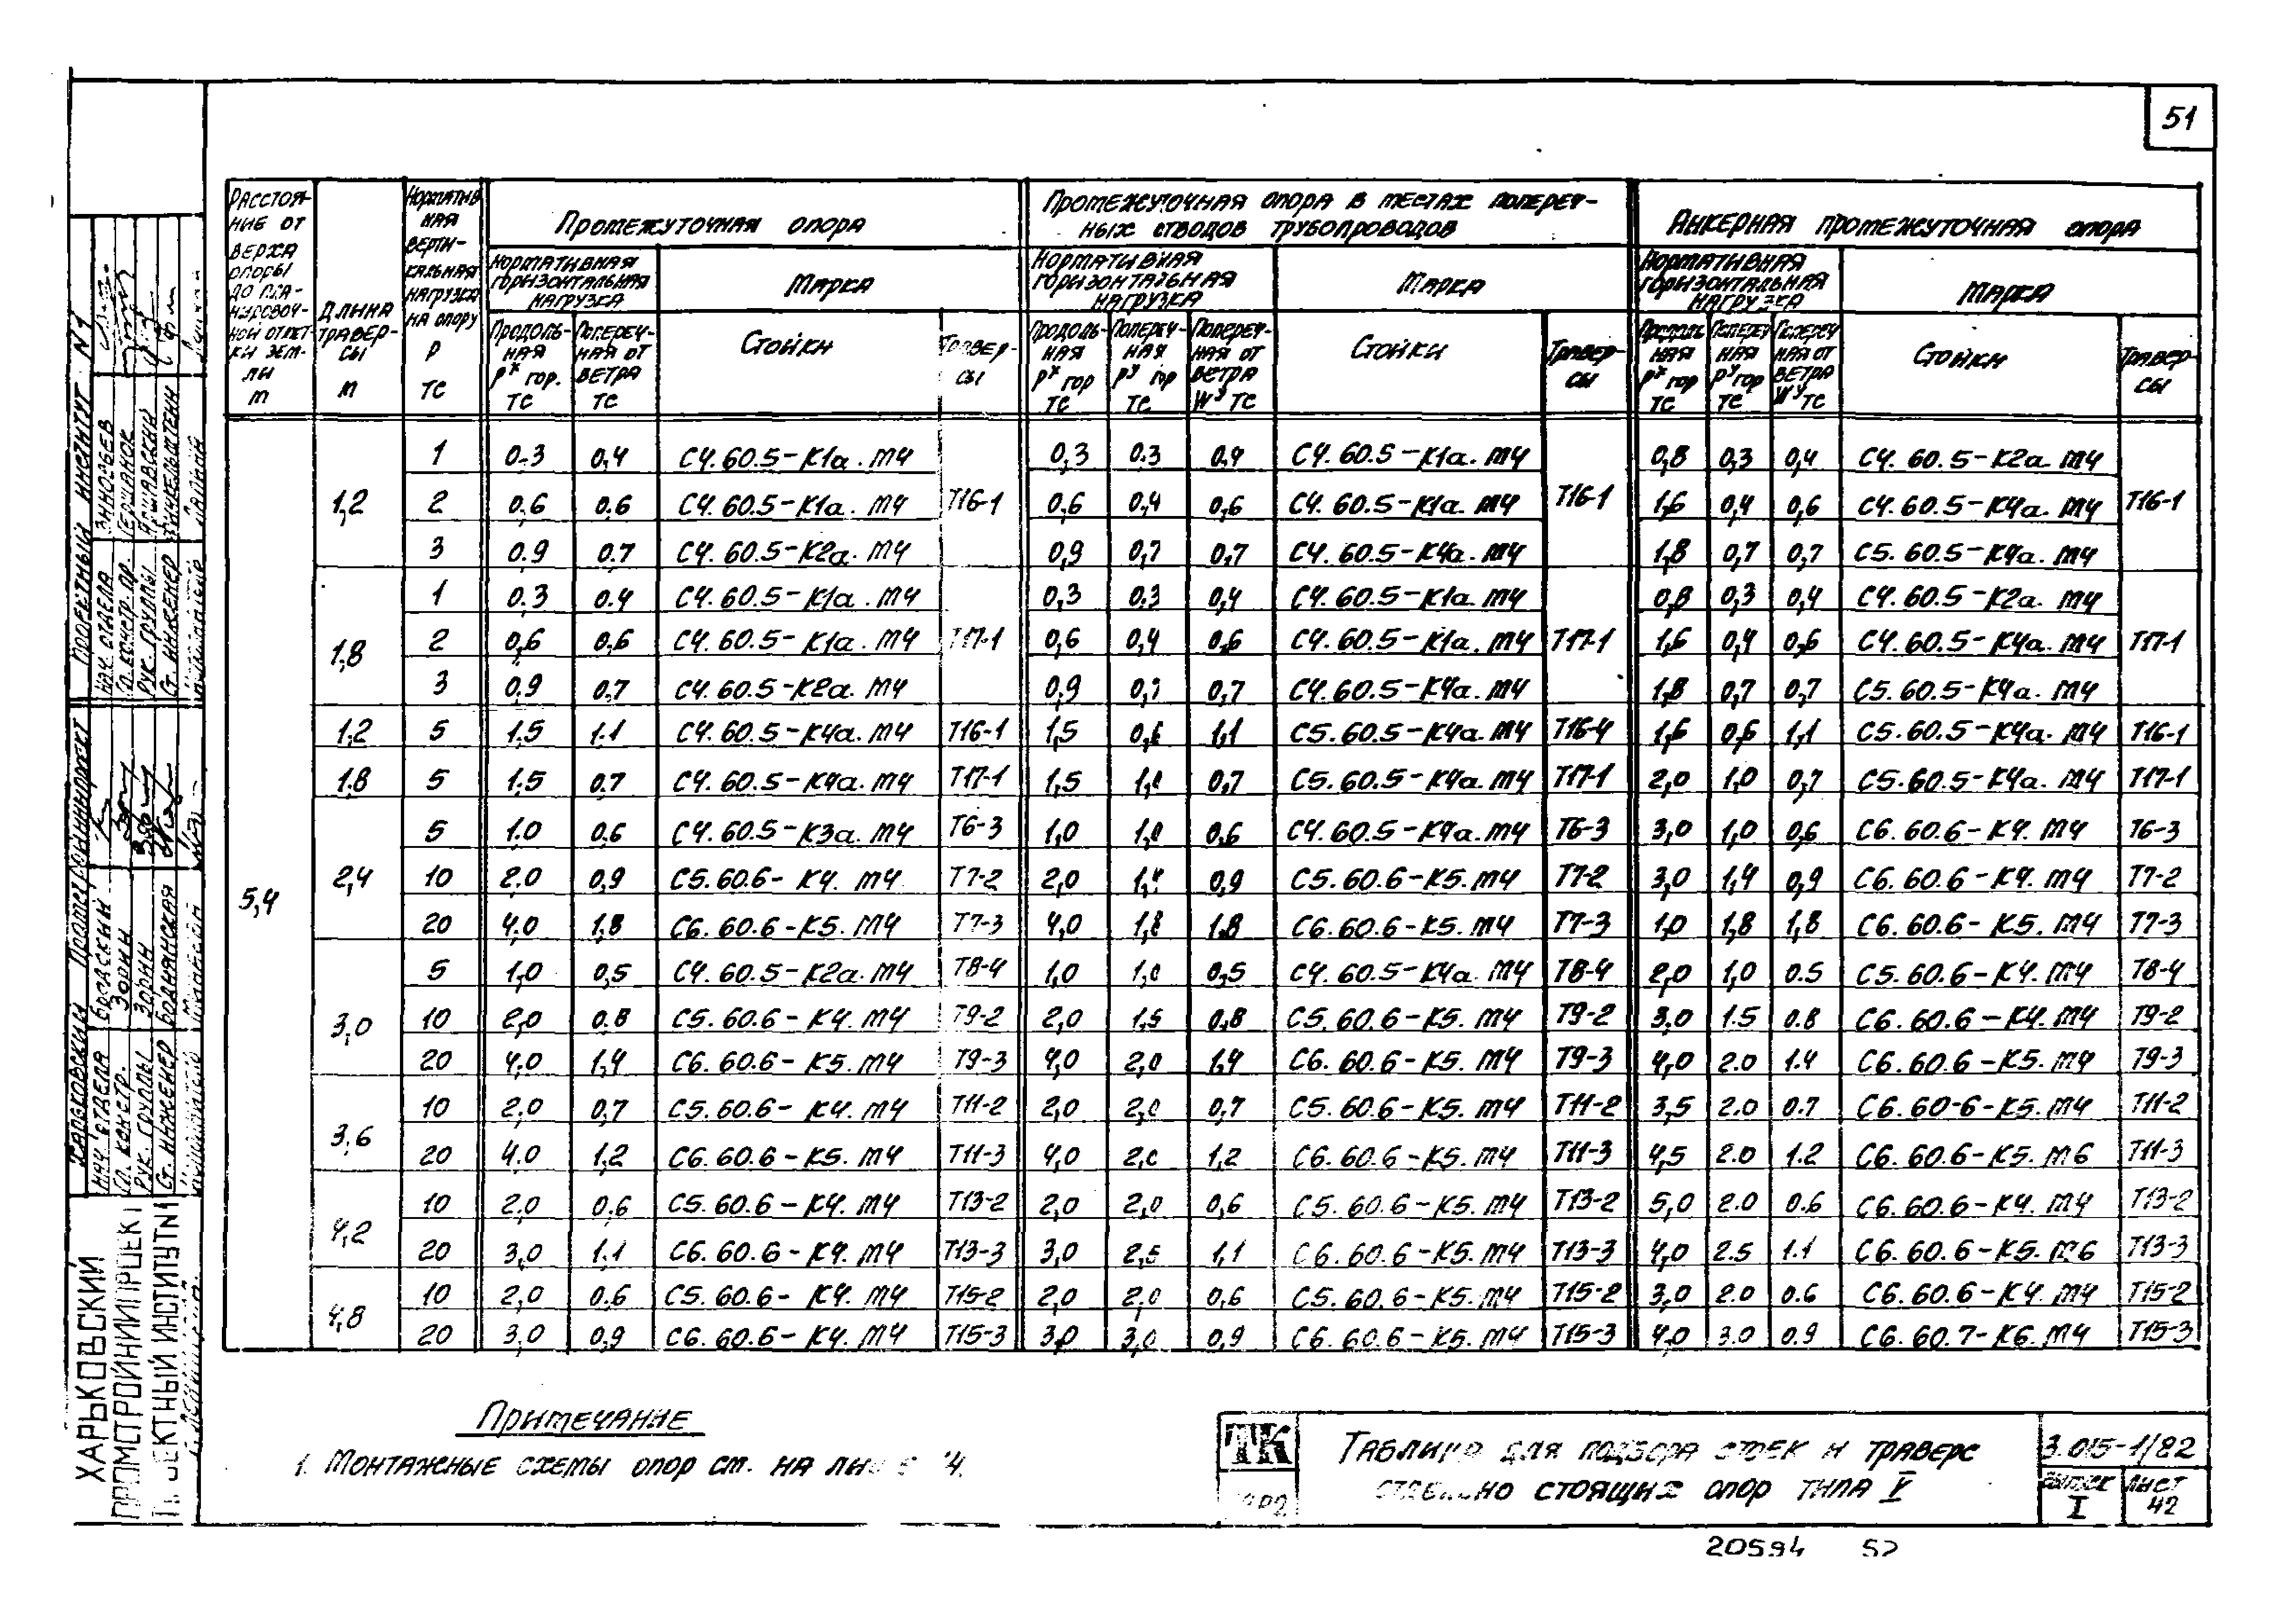 51
Расстоя-
ние от
верха
опоры
до пла-
нировоч-
ной отмет-
ки зем-
ли
м
Длина
травер-
сы
м
Норматив
ная
верти-
кальная
нагрузка
на опору
P
тс
Промежуточная опора
Нормативная
горизонтальная
нагрузка
Продоль-
ная
Pˣ гор.
тс
Попереч-
ная от
ветра
тс
Марка
Стойки
Травер-
сы
Промежуточная опора в местах попереч-
ных отводов трубопроводов
Нормативная
горизонтальная
нагрузка
Продоль-
ная
Pˣ гор
тс
Попереч-
ная
Pʸ гор
тс
Попереч-
ная от
ветра
Wʸ тс
Марка
Стойки
Травер-
сы
Анкерная промежуточная опора
Нормативная
горизонтальная
нагрузка
Продоль
ная
Pˣ гор
тс
Попереч
ная
Pʸ гор
тс
Попереч
ная от
ветра
Wʸ тс
Марка
Стойки
Травер-
сы
5,4
1,2
1 0.3 0,4 С4.60.5-К1а.М4 0,3 0.3 0,4 С4.60.5-К1а.М4 0,8 0,3 0,4 С4.60.5-К2а.М4
2 0,6 0.6 С4.60.5-К1а.М4 Т16-1 0,6 0,4 0,6 С4.60.5-К1а.М4 Т16-1 1,6 0,4 0,6 С4.60.5-К4а.М4 Т16-1
3 0.9 0.7 С4.60.5-К2а.М4 0,9 0,7 0,7 С4.60.5-К4а.М4 1,8 0,7 0,7 С5.60.5-К4а.М4
1,8
1 0.3 0.4 С4.60.5-К1а.М4 0,3 0.3 0,4 С4.60.5-К1а.М4 0,8 0,3 0,4 С4.60.5-К2а.М4
2 0,6 0.6 С4.60.5-К1а.М4 Т17-1 0,6 0,4 0,6 С4.60.5-К1а.М4 Т17-1 1,6 0,4 0,6 С4.60.5-К4а.М4 Т17-1
3 0,9 0.7 С4.60.5-К2а.М4 0,9 0,7 С4.60.5-К4а.М4 1,8 0,7 0,7 С5.60.5-К4а.М4
1,2 5 1.5 1.1 С4.60.5-К4а.М4 Т16-1 1,5 0,6 1,1 С5.60.5-К4а.М4 Т16-4 1,6 0,6 1,1 С5.60.5-К4а.М4 Т16-1
1,8 5 1.5 0.7 С4.60.5-К4а.М4 Т17-1 1,5 1,0 0,7 С5.60.5-К4а.М4 Т17-1 2,0 1,0 0,7 С5.60.5-К4а.М4 Т17-1
2,4
5 1.0 0.6 С4.60.5-К3а.М4 Т6-3 1,0 1,0 0,6 С4.60.5-К4а.М4 Т6-3 3,0 1,0 0,6 С6.60.6-К4.М4 Т6-3
10 2.0 0,9 С5.60.6-К4.М4 Т7-2 2,0 1,4 0,9 С5.60.6-К5.М4 Т7-2 3,0 1,4 0,9 С6.60.6-К4.М4 Т7-2
20 4.0 1,8 С6.60.6-К5.М4 Т7-3 4,0 1,8 1,8 С6.60.6-К5.М4 Т7-3 1,0 1,8 1,8 С6.60.6-К5.М4 Т7-3
3,0
5 1,0 0,5 С4.60.5-К2а.М4 Т8-4 1,0 1,0 0,5 С4.60.5-К4а.М4 Т8-4 2,0 1,0 0.5 С5.60.6-К4.М4 Т8-4
10 2,0 0.8 С5.60.6-К4.М4 Т9-2 2,0 1,5 0,8 С5.60.6-К5.М4 Т9-2 3,0 1.5 0.8 С6.60.6-К4.М4 Т9-2
20 4,0 1,4 С6.60.6-К5.М4 Т9-3 4,0 2,0 1,4 С6.60.6-К5.М4 Т9-3 4,0 2.0 1.4 С6.60.6-К5.М4 Т9-3
3,6
10 2,0 0,7 С5.60.6-К4.М4 Т11-2 2,0 2,0 0,7 С5.60.6-К5.М4 Т11-2 3,5 2.0 0.7 С6.60-6-К5.М4 Т11-2
20 4.0 1,2 С6.60.6-К5.М4 Т11-3 4,0 2,0 1,2 С6.60.6-К5.М4 Т11-3 4,5 2.0 1.2 С6.60.6-К5.М6 Т11-3
4,2
10 2,0 0,6 С5.60.6-К4.М4 Т13-2 2,0 2,0 0,6 С5.60.6-К5.М4 Т13-2 5,0 2.0 0.6 С6.60.6-К4.М4 Т13-2
20 3,0 1.1 С6.60.6-К4.М4 Т13-3 3,0 2,5 1,1 С6.60.6-К5.М4 Т13-3 4,0 2.5 1.1 С6.60.6-К5.М6 Т13-3
4,8
10 2,0 0.6 С5.60.6-К4.М4 Т15-2 2,0 2,0 0,6 С5.60.6-К5.М4 Т15-2 3,0 2.0 0.6 С6.60.6-К4.М4 Т15-2
20 3,0 0,9 С6.60.6-К4.М4 Т15-3 3,0 3,0 0,9 С6.60.6-К5.М4 Т15-3 4,0 3.0 0.9 С6.60.7-К6.М4 Т15-3
Примечание
1. Монтажные схемы опор см. на
ТК
Таблица для подбора стоек и траверс
отдельно стоящих опор типа V
3.015-1/82
Выпуск
I
Лист
42
20594 52
Проектный институт №1
Нач. отдела
Гл. констр. пр. Гершанок
Рук. группы Аршавский
Ст. инженер Финкельштейн
Харьковский Промстройниипроект
Нач. отдела Бродский
Гл. констр. Зорин
Рук. группы Зорин
Ст. инженер Воднянская
ХАРЬКОВСКИЙ
ПРОМСТРОЙНИИПРОЕК
ЕКТНЫЙ ИНСТИТУТ N1